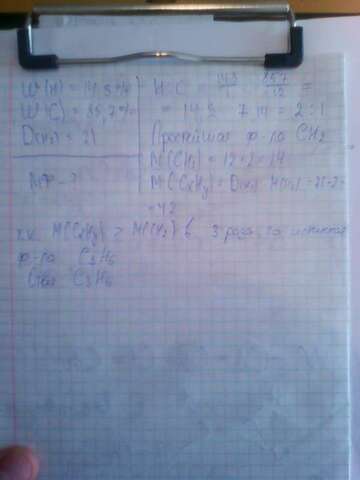 W(H) = 14,3%
W(C) = 85,7%
D(H2) = 21
МФ - ?
H : C = 14,3/1 : 85,7/12 =
= 14,3 : 7,14 = 2 : 1
Простейшая ф-ла CH2
M(CH2) = 12+2 = 14
M(CxHy) = D(H2) · M(H2) = 21·2=
=42
т.к. M(CxHy) > M(CH2) в 3 раза, то
ф-ла C3H6
C3H6